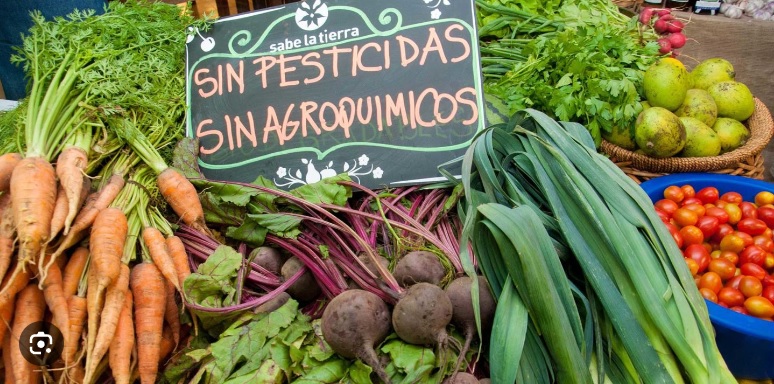 sabe la tierra
SIN PESTICIDAS
SIN AGROQUIMICOS